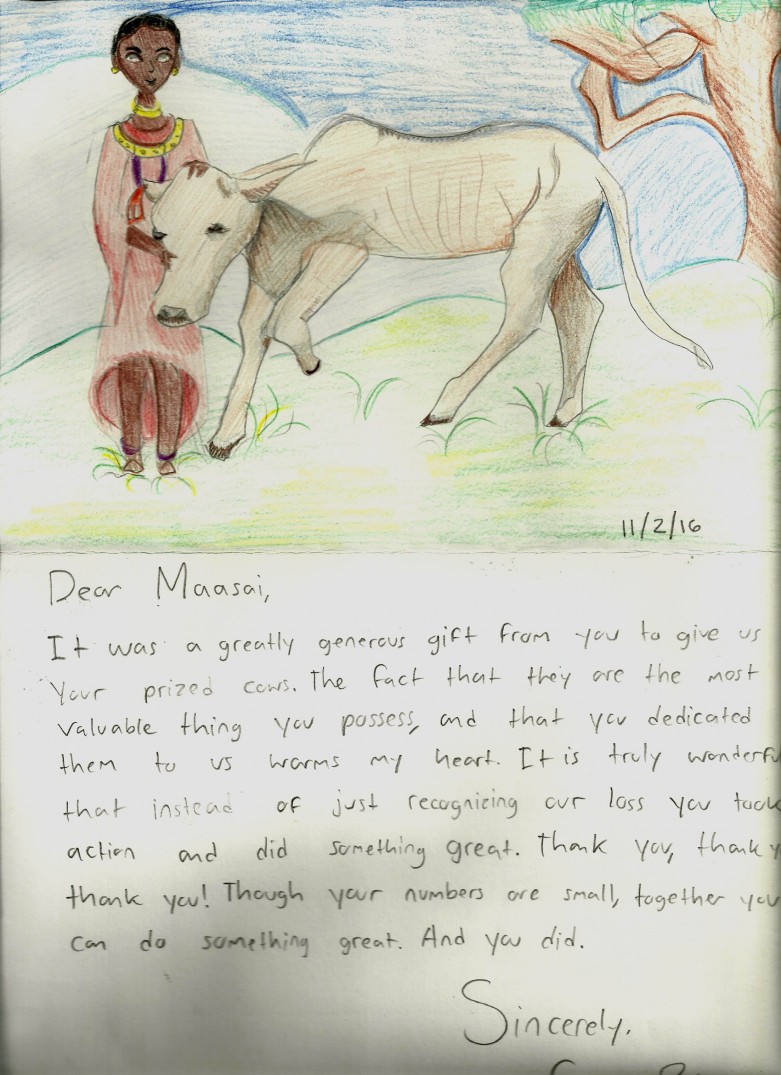 11/2/16
Dear Maasai,
It was a greatly generous gift from you to give us
your prized cows. The fact that they are the most
valuable thing you possess, and that you dedicated
them to us warms my heart. It is truly wonderfu
that instead of just recognizing our loss you took
action and did something great. Thank you, thank y
thank you! Though your numbers are small, together you
can do something great. And you did.
Sincerely,